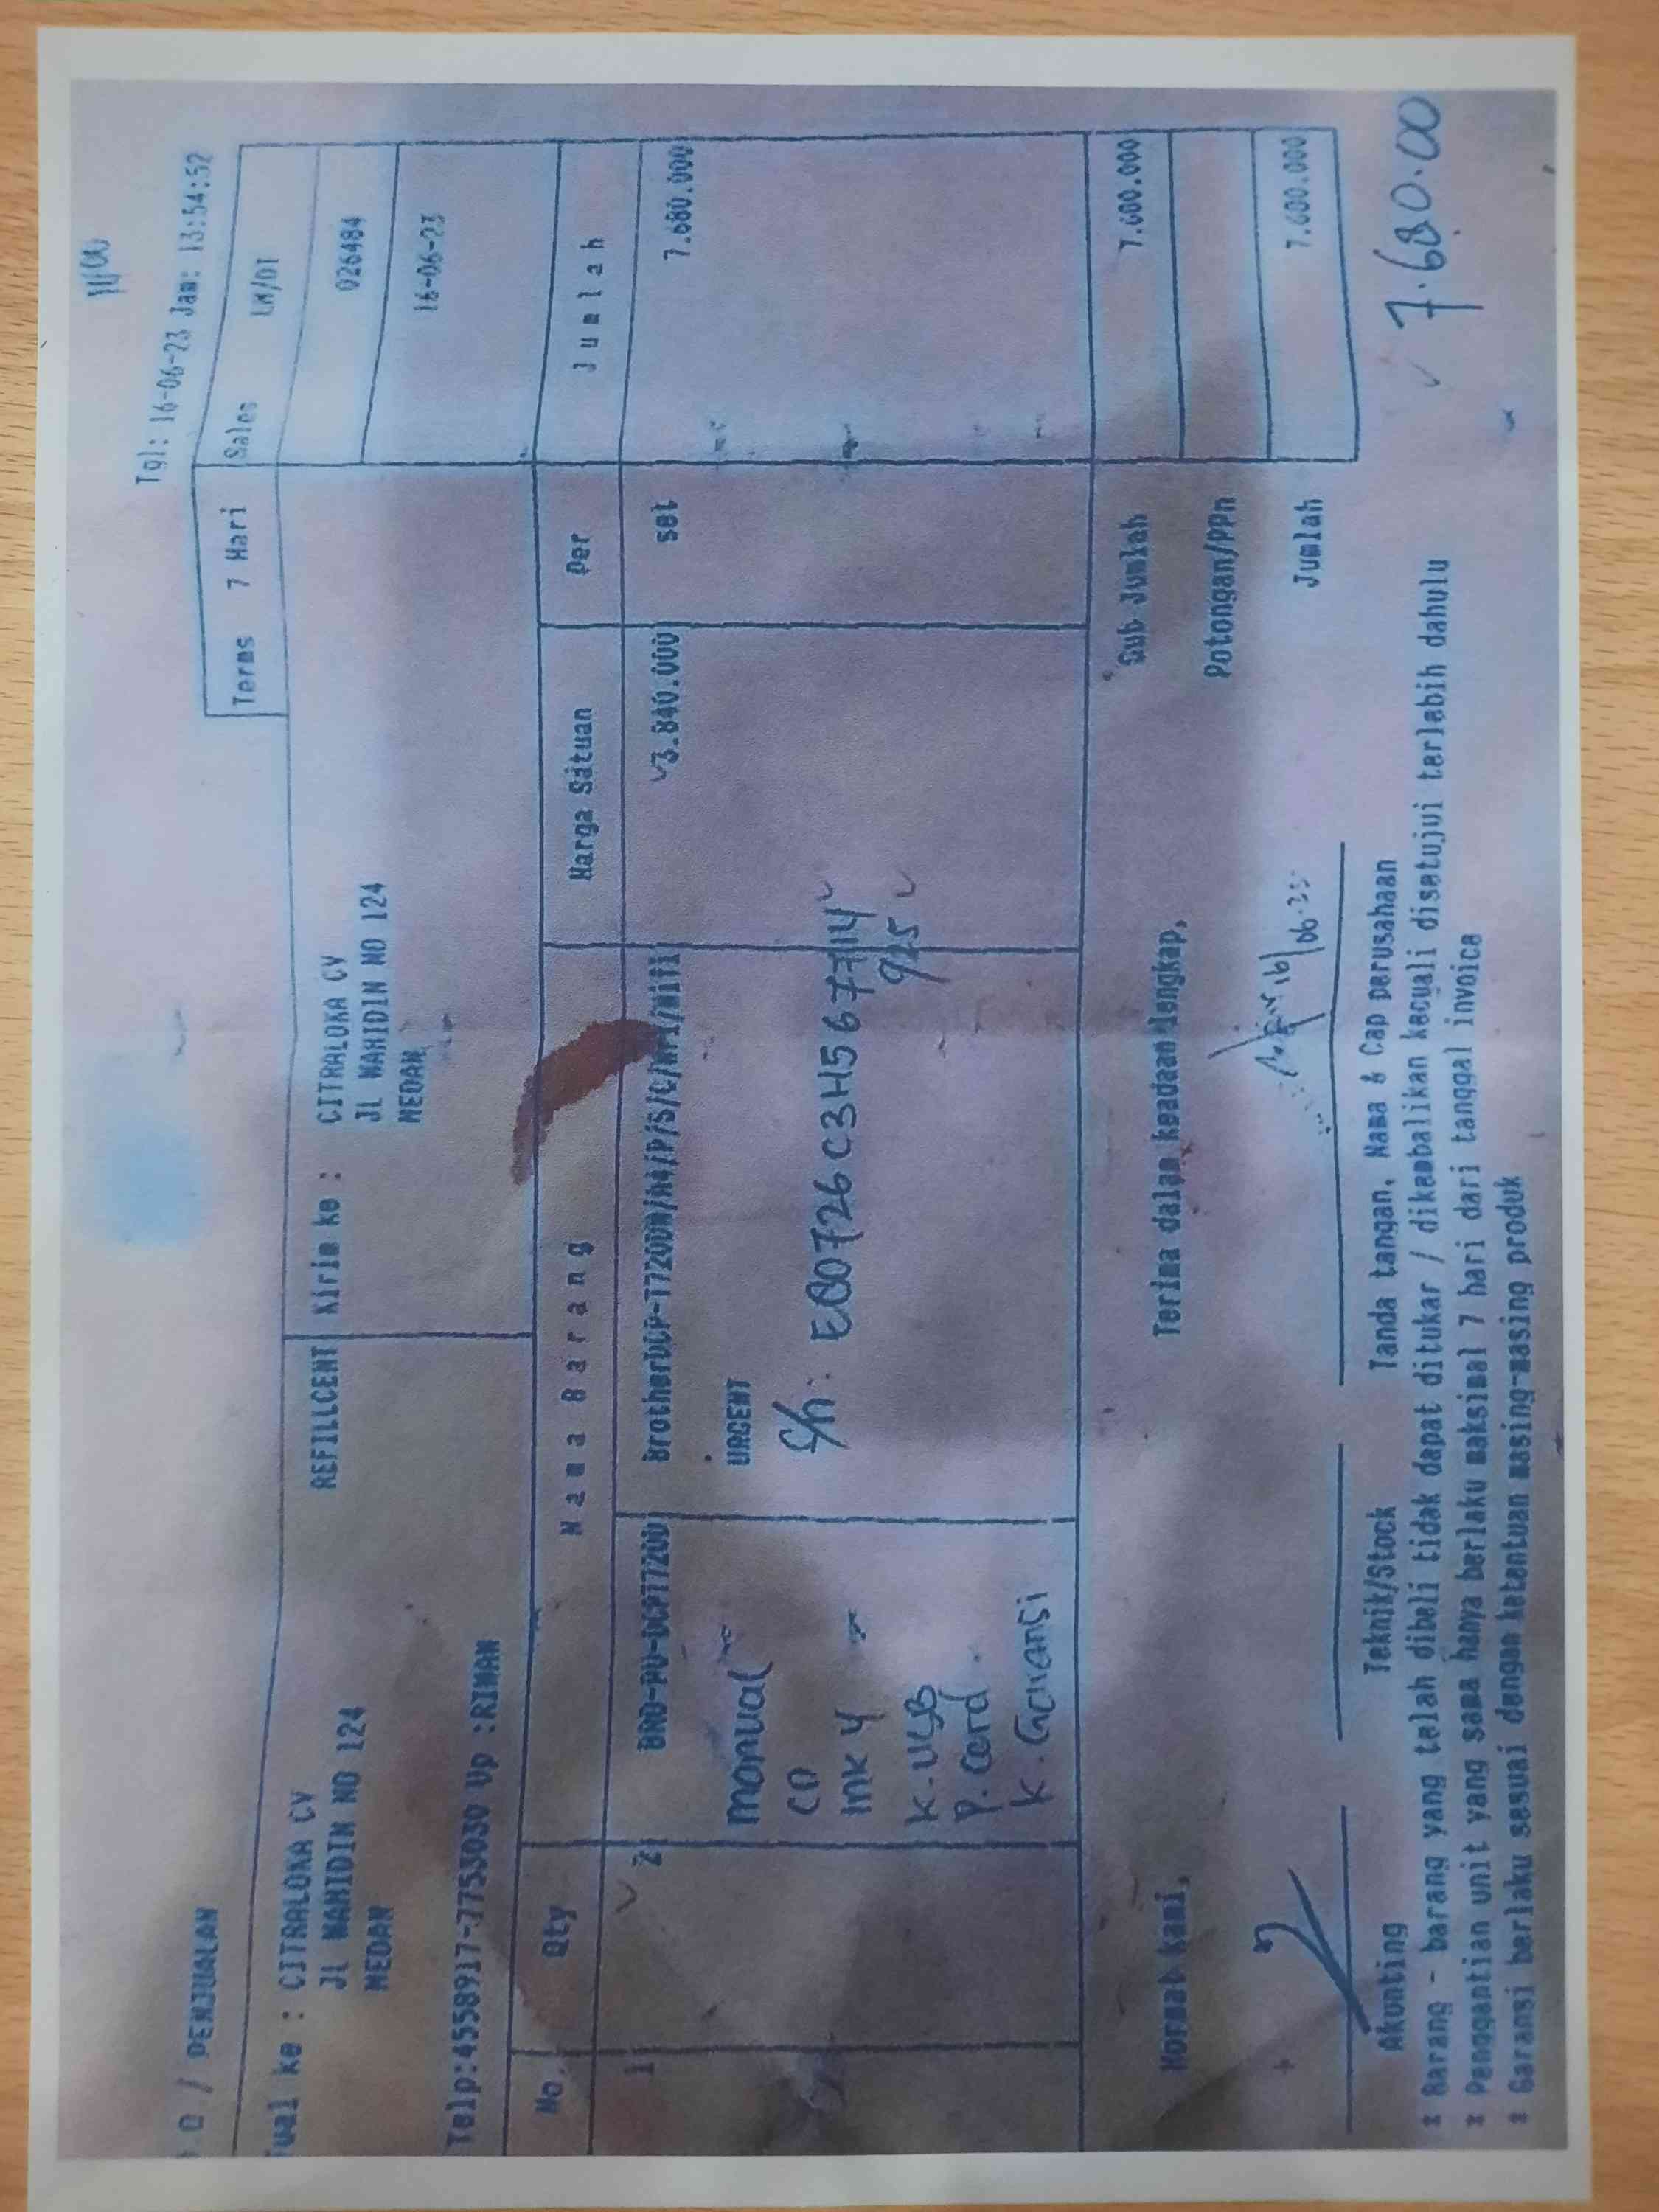 Tgl: 16-06-23 Jam: 13:54:52
O / PENJUALAN
Terms 7 Hari
Sales LM/DI
ual ke : CITRALOKA CV
JL WAHIDIN NO 124
MEDAN
REFILLCENT
Kirim ke : CITRALOKA CV
JL WAHIDIN NO 124
MEDAN
026484
16-06-23
Telp:4558917-7753030 Up :RIMAN
No. Qty Nama Barang Harga Satuan Per Jumlah
1 2 BRO-PU-DCPT720D BrotherDCP-T720DW/A4/P/S/C/WFi/Wifi 3.840.000 set 7.680.000
URGENT
manual
CD
S/n: E80726C3H567714
925
ink 4
K. USB
P. Cord
K. Garansi
Sub Jumlah 7.680.000
Potongan/PPn
Jumlah 7.680.000
Hormat kami,
Terima dalam keadaan lengkap,
7.680.00
Akunting
Teknik/Stock
Tanda tangan, Nama & Cap perusahaan
* Barang - barang yang telah dibeli tidak dapat ditukar / dikembalikan kecuali disetujui terlebih dahulu
* Penggantian unit yang sama hanya berlaku maksimal 7 hari dari tanggal invoice
* Garansi berlaku sesuai dengan ketentuan masing-masing produk